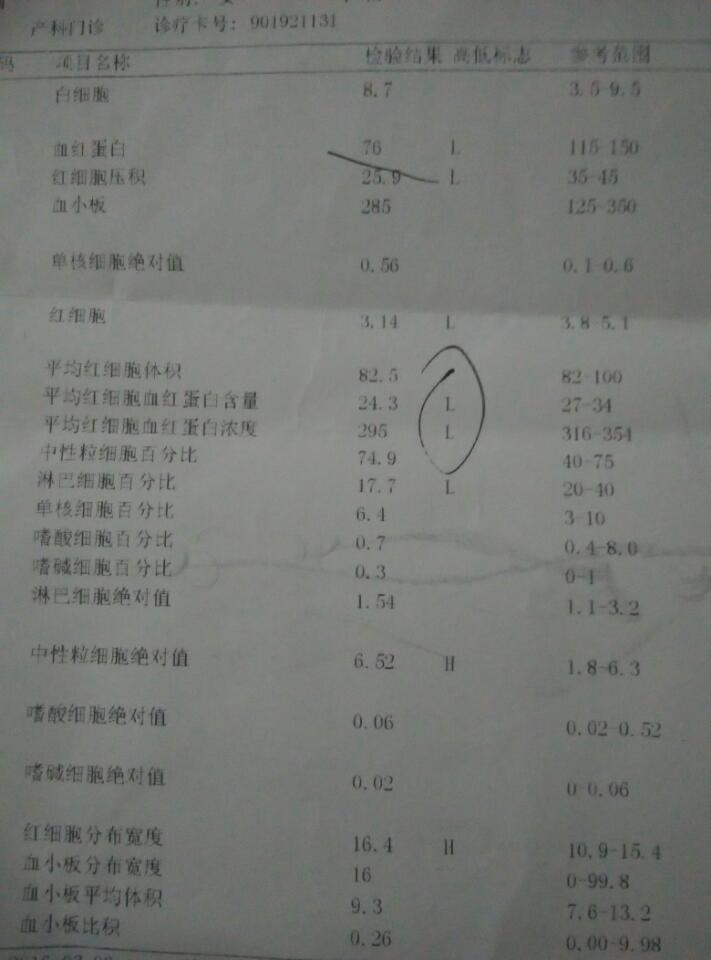 产科门诊 诊疗卡号: 901921131
码 项目名称 检验结果 高低标志 参考范围
白细胞 8.7 3.5-9.5
血红蛋白 76 L 115-150
红细胞压积 25.9 L 35-45
血小板 285 125-350
单核细胞绝对值 0.56 0.1-0.6
红细胞 3.14 L 3.8-5.1
平均红细胞体积 82.5 82-100
平均红细胞血红蛋白含量 24.3 L 27-34
平均红细胞血红蛋白浓度 295 L 316-354
中性粒细胞百分比 74.9 40-75
淋巴细胞百分比 17.7 L 20-40
单核细胞百分比 6.4 3-10
嗜酸细胞百分比 0.7 0.4-8.0
嗜碱细胞百分比 0.3 0-1
淋巴细胞绝对值 1.54 1.1-3.2
中性粒细胞绝对值 6.52 H 1.8-6.3
嗜酸细胞绝对值 0.06 0.02-0.52
嗜碱细胞绝对值 0.02 0-0.06
红细胞分布宽度 16.4 H 10.9-15.4
血小板分布宽度 16 0-99.8
血小板平均体积 9.3 7.6-13.2
血小板比积 0.26 0.00-9.98